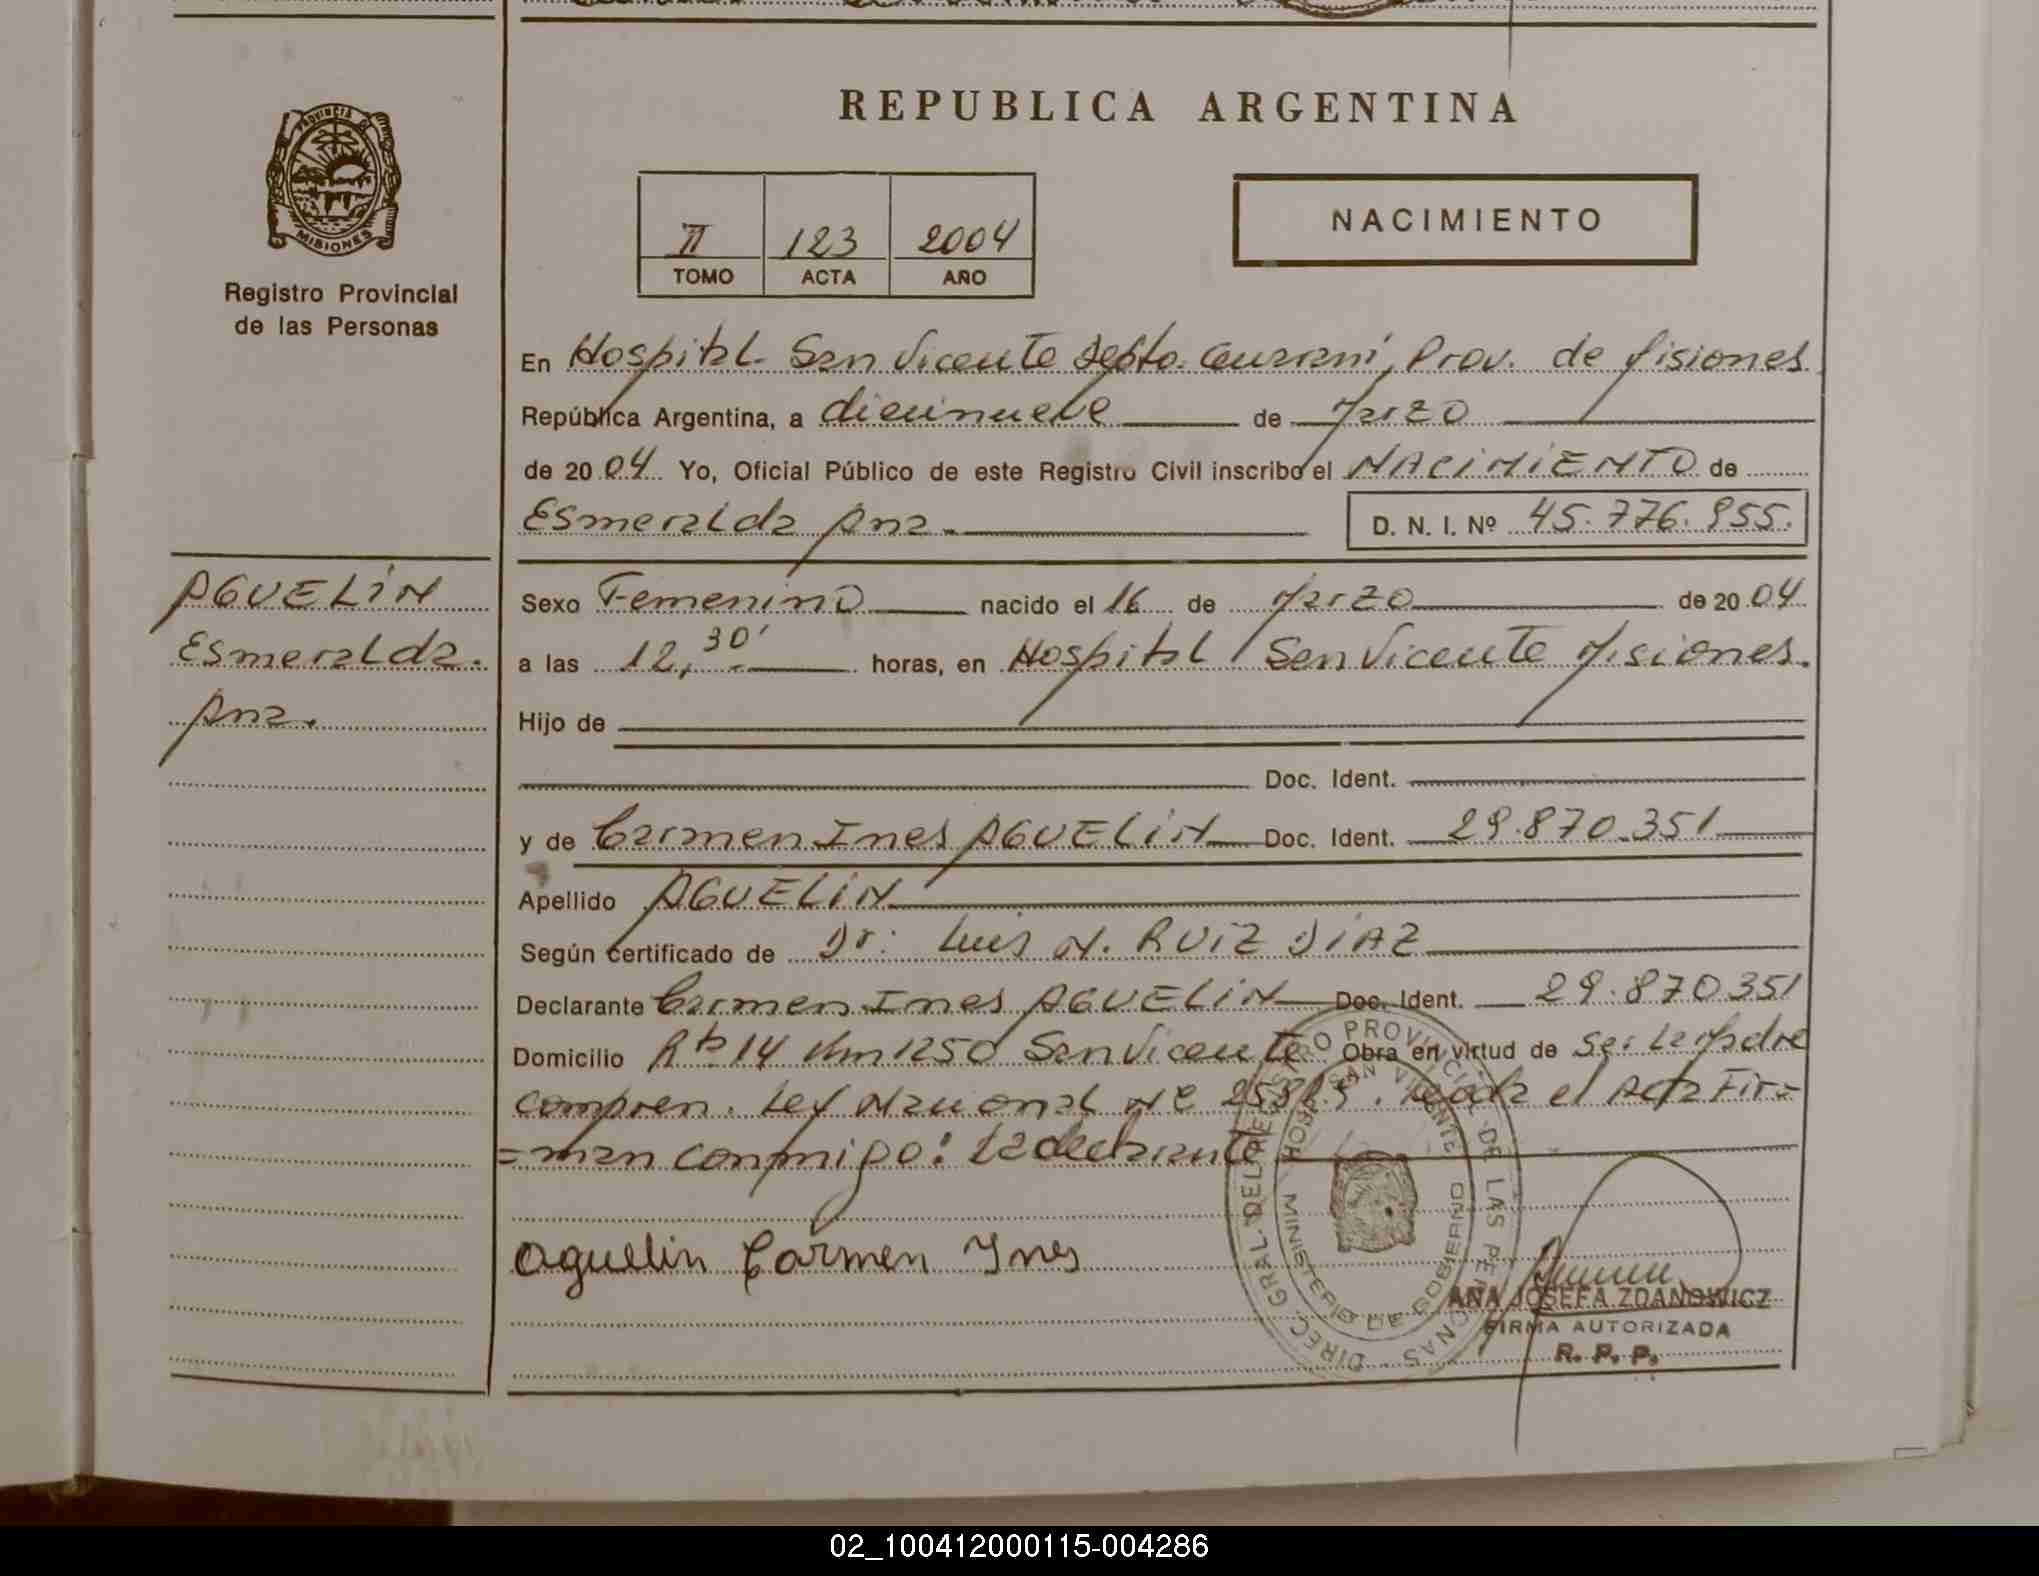 REPUBLICA ARGENTINA
PROVINCIA DE
MISIONES
Registro Provincial
de las Personas
II 123 2004
TOMO ACTA AÑO
NACIMIENTO
En Hospital San Vicente Depto. Guaraní, Prov. de Misiones
República Argentina, a diecinueve de Marzo
de 2004 Yo, Oficial Público de este Registro Civil inscribo el NACIMIENTO de
Esmeralda Ana.
D. N. I. Nº 45.776.955.
AGUELIN
Esmeralda.
Ana.
Sexo Femenino nacido el 16 de Marzo de 2004
a las 12,30' horas, en Hospital San Vicente Misiones.
Hijo de
Doc. Ident.
y de Carmen Ines AGUELIN Doc. Ident. 29.870.351
Apellido AGUELIN
Según certificado de Dr: Luis N. RUIZ DIAZ
Declarante Carmen Ines AGUELIN Doc. Ident. 29.870351
Domicilio Rta 14 Km 1250 San Vicente Obra en virtud de ser la Madre
compren. Ley Nacional Nº Leida el Acta Fir=
=man conmigo: La declarante
Aguelin Carmen Ines
DIREC. GRAL. DEL REGISTRO PROVINCIAL DE LAS PERSONAS
HOSP. SAN VICENTE
MINISTERIO DE GOBIERNO
ANA JOSEFA ZDANOWICZ
FIRMA AUTORIZADA
R. P. P.
02_100412000115-004286